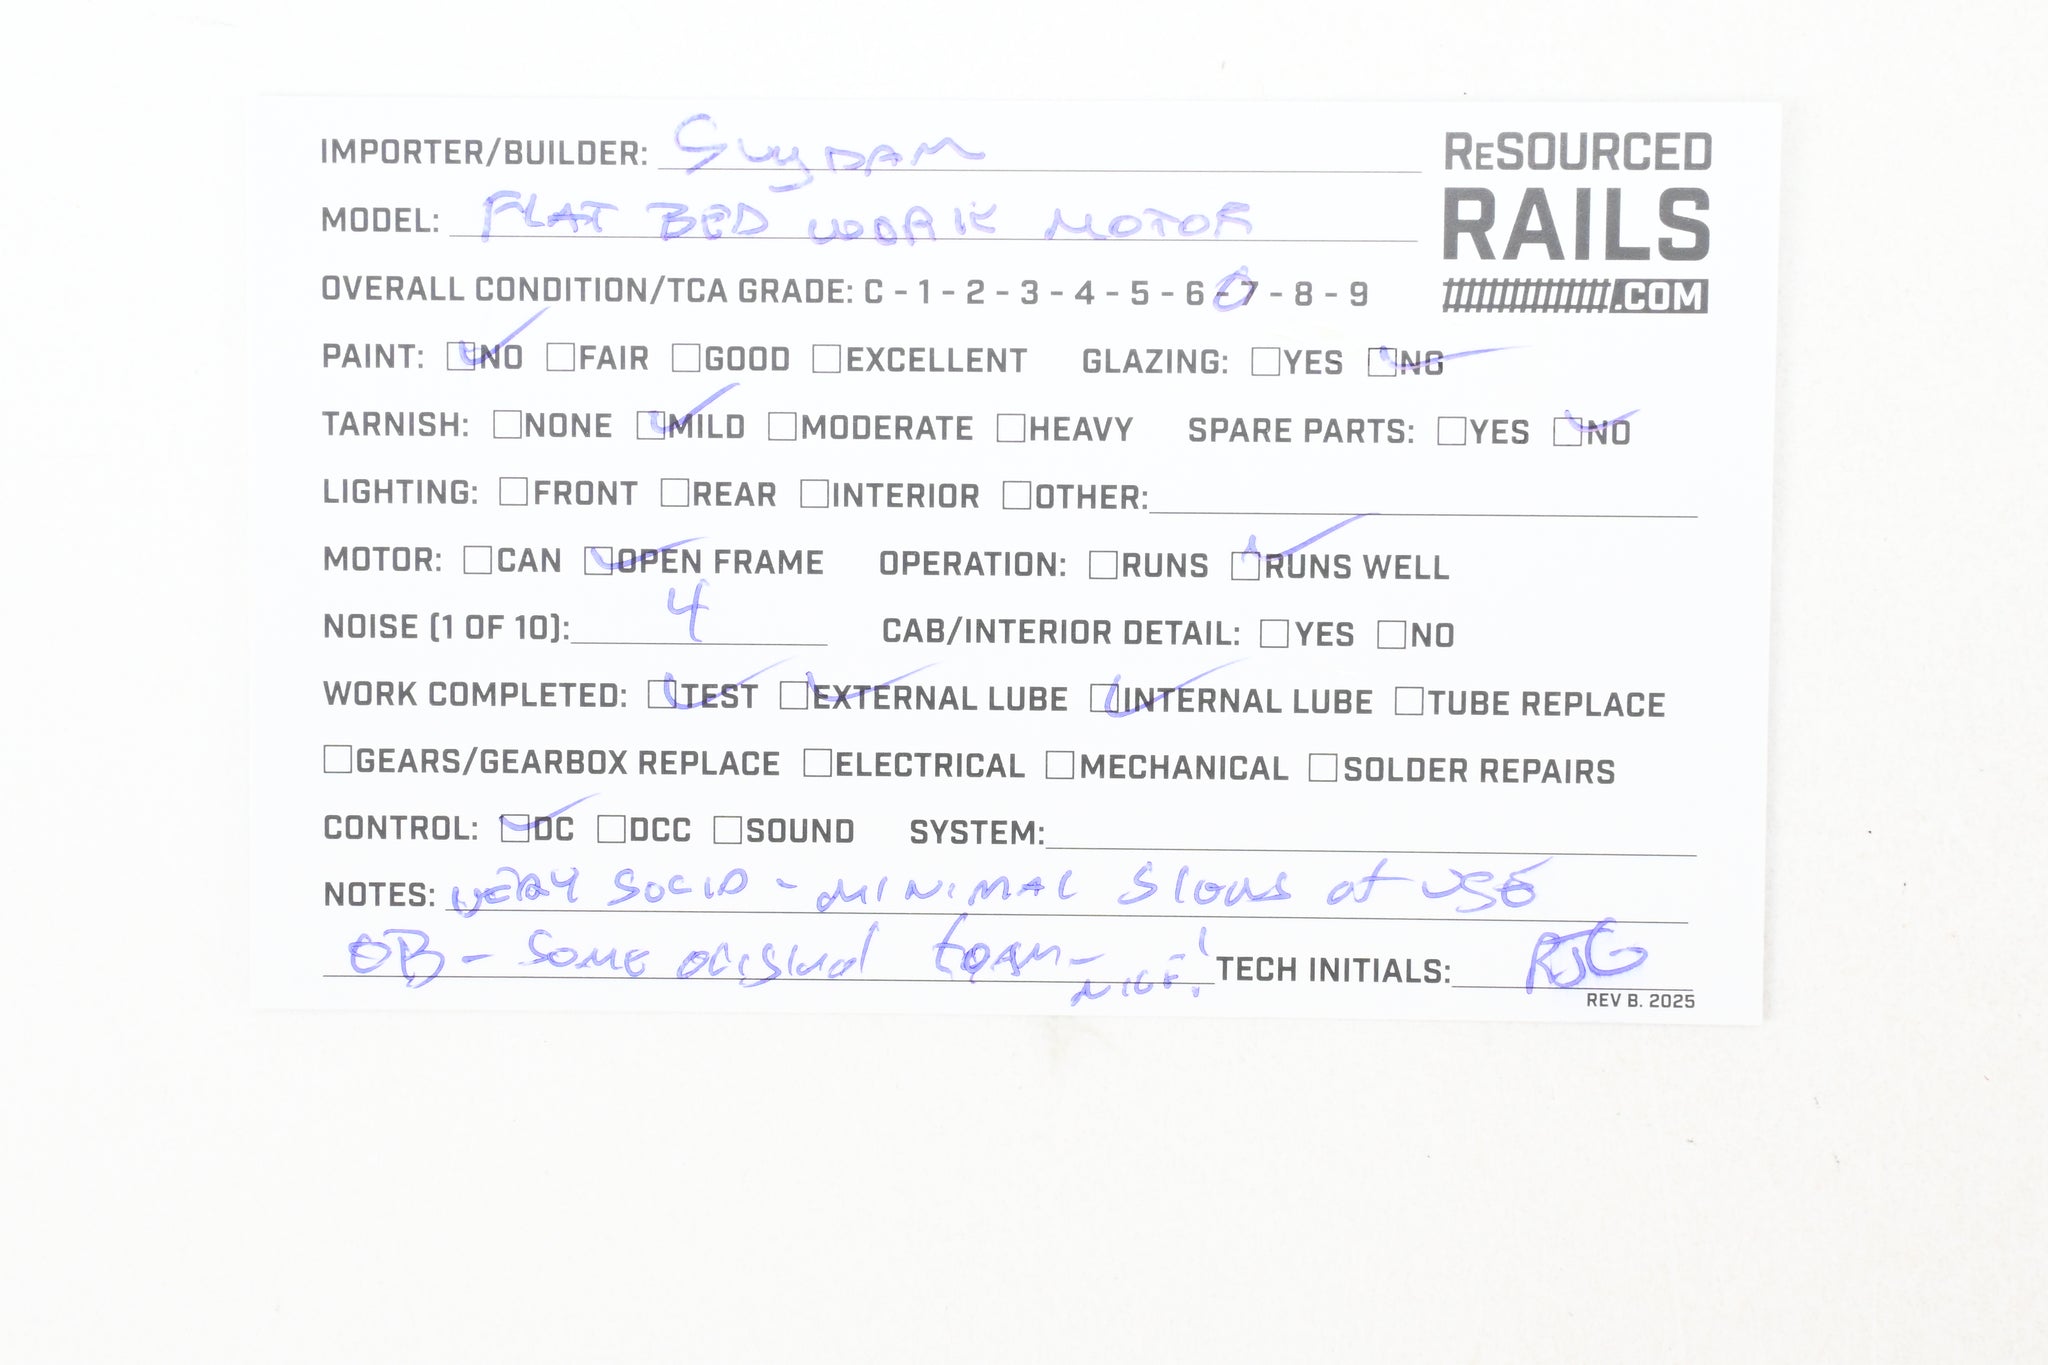 IMPORTER/BUILDER: Suydam
ReSOURCED
RAILS
.COM
MODEL: FLAT BED WORK MOTOR
OVERALL CONDITION/TCA GRADE: C - 1 - 2 - 3 - 4 - 5 - 6 - 7 - 8 - 9
PAINT: NO FAIR GOOD EXCELLENT GLAZING: YES NO
TARNISH: NONE MILD MODERATE HEAVY SPARE PARTS: YES NO
LIGHTING: FRONT REAR INTERIOR OTHER:
MOTOR: CAN OPEN FRAME OPERATION: RUNS RUNS WELL
NOISE (1 OF 10): 4 CAB/INTERIOR DETAIL: YES NO
WORK COMPLETED: TEST EXTERNAL LUBE INTERNAL LUBE TUBE REPLACE
GEARS/GEARBOX REPLACE ELECTRICAL MECHANICAL SOLDER REPAIRS
CONTROL: DC DCC SOUND SYSTEM:
NOTES: VERY SOLID - MINIMAL SIGNS of USE
OB - SOME original foam - NICE! TECH INITIALS: RJG
REV B. 2025